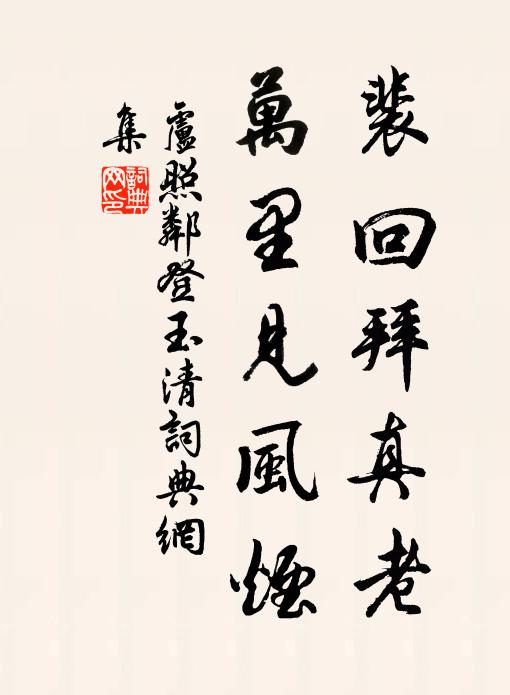 裴回拜真老
萬里見風煙
盧照鄰登玉清詞典網
集
詞典
网印